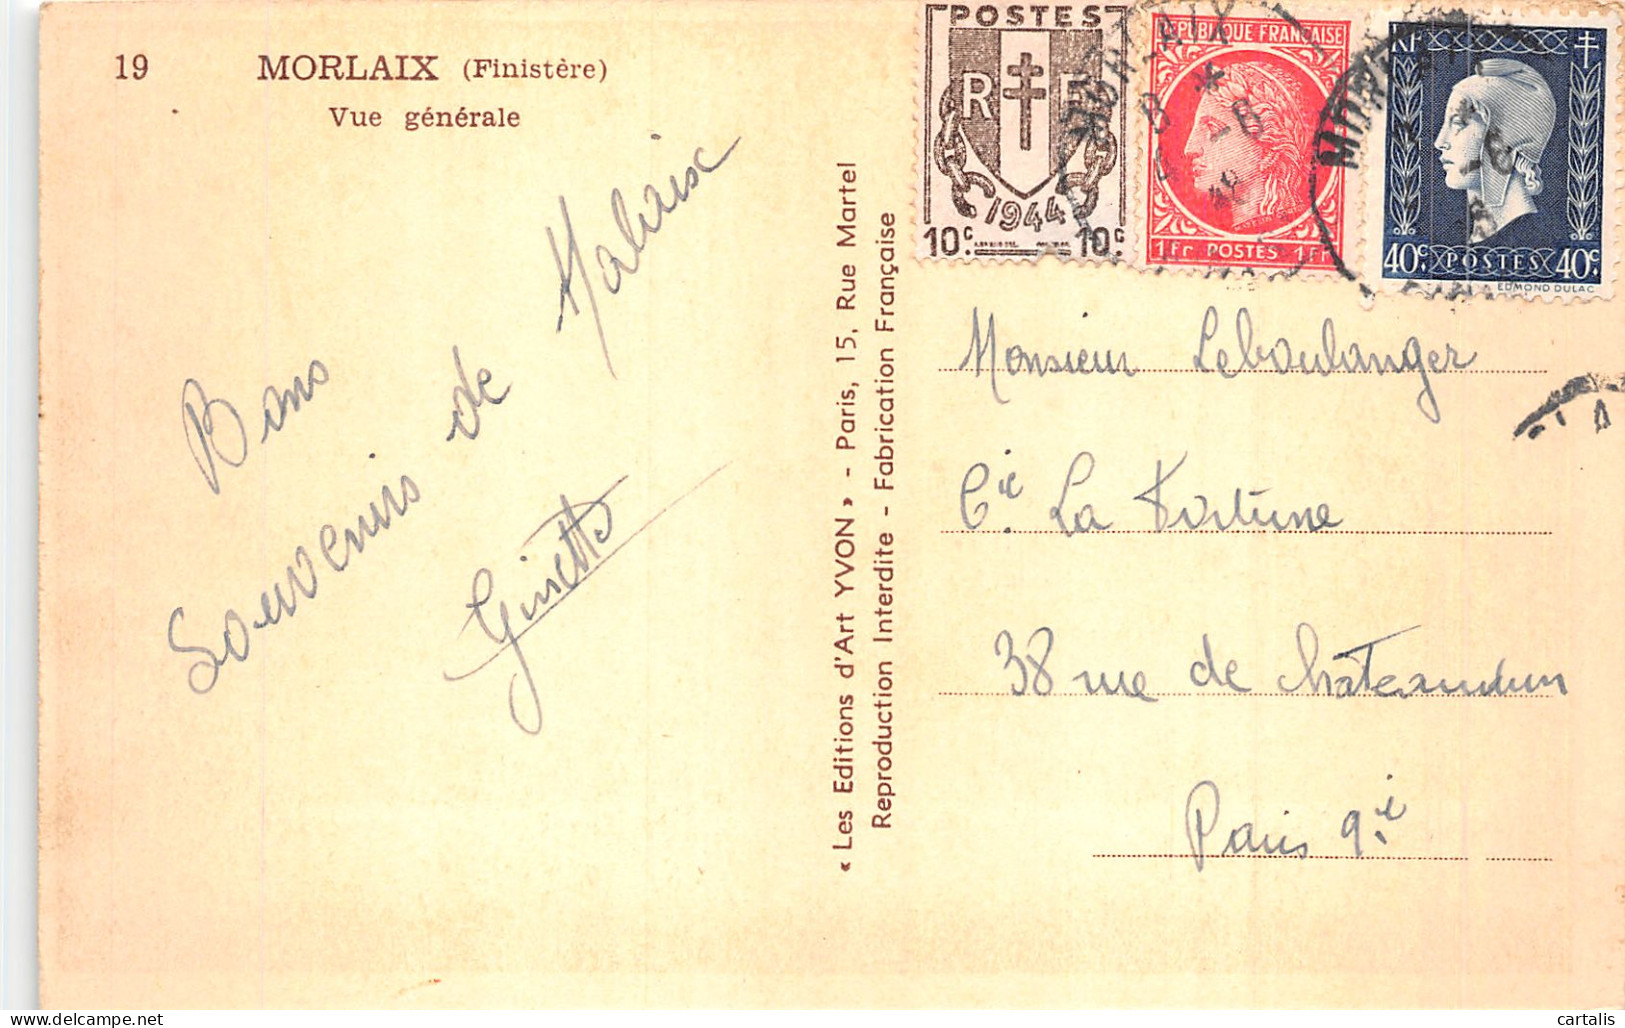 19 MORLAIX (Finistère)
Vue générale
Bons
Souvenirs de Malaix
Ginette
« Les Editions d'Art YVON » - Paris, 15, Rue Martel
Reproduction Interdite - Fabrication Française
POSTES
R F
1944
10c 10c
RÉPUBLIQUE FRANÇAISE
1Fr POSTES 1Fr
RF
40c POSTES 40c
EDMOND DULAC
MORLAIX
Monsieur Leboulanger
Cie La Fortune
38 rue de Châteaudun
Paris 9e
cartalis
delcampe.net